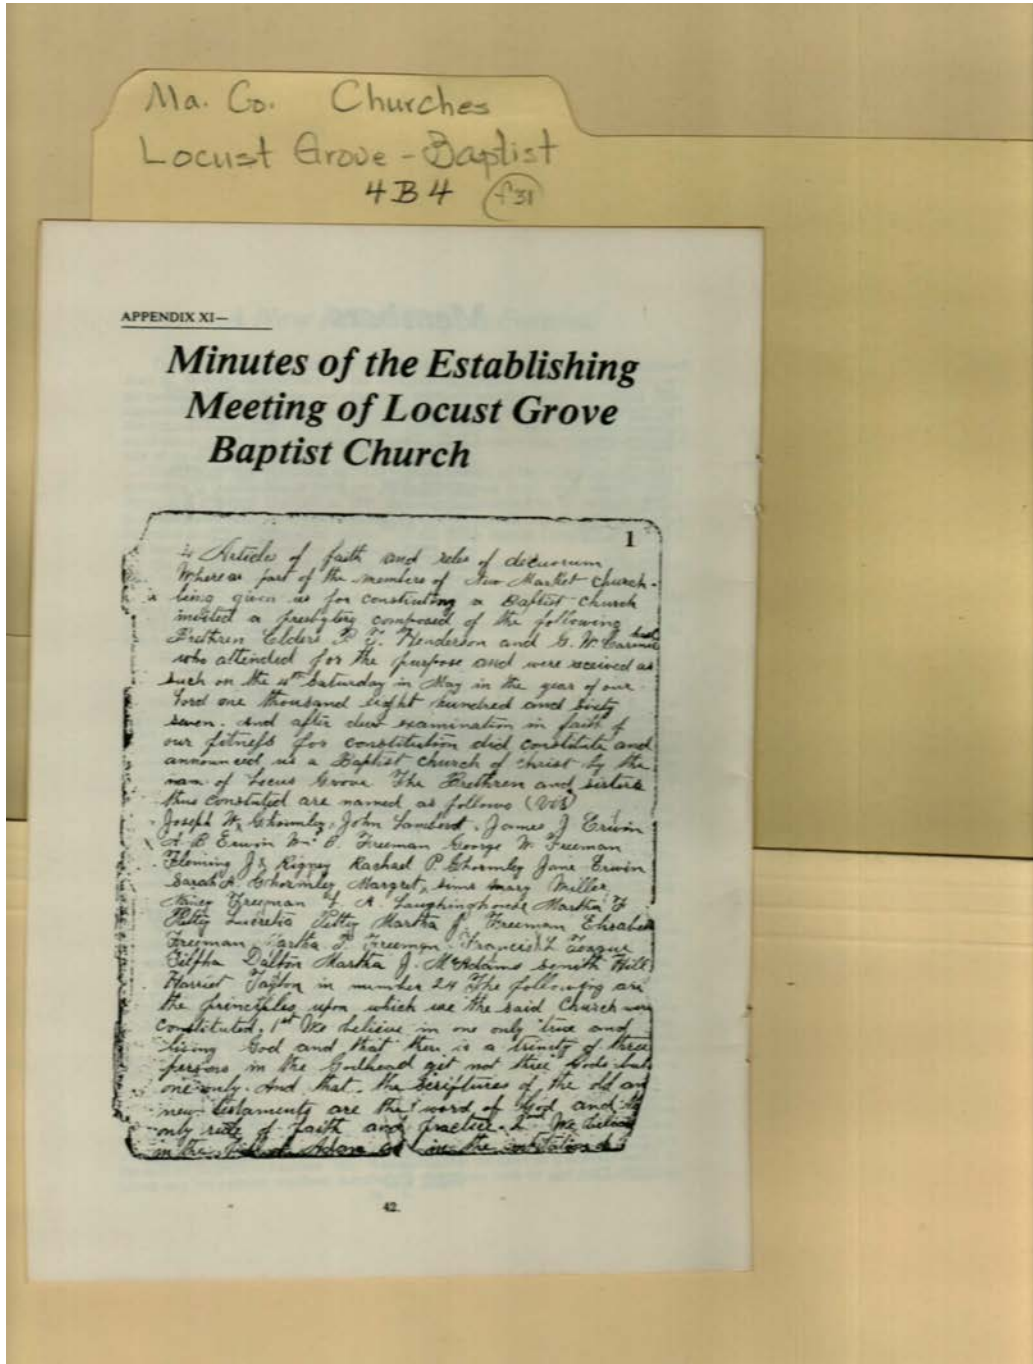 Ma. Co. Churches
Locust Grove - Baptist
4B4 f31
APPENDIX XI—
Minutes of the Establishing
Meeting of Locust Grove
Baptist Church
1
Articles of faith and rules of decuorum
Whereas part of the members of New Market church
being given us for constituting a Baptist church
invited a presbytery composed of the following
Brethren Elders P. T. Henderson and G. W. Carmichael
who attended for the purpose and were received as
such on the 4th Saturday in May in the year of our
Lord one thousand eight hundred and sixty
seven. And after due examination in faith &
our fitness for constitution did constitute and
announced us a Baptist church of christ by the
nam of Locus Grove The Brethren and sisters
thus constuted are named as follows (viz)
Joseph W. Ghormley, John Lambert, James J Erwin
A. B Erwin Wm. B. Freeman George W. Freeman
Fleming J. Rigney Rachael P. Ghormley Jane Erwin
Sarah A. Ghormley Margret Sims mary Miller
Nancy Freeman A. Laughinghouse Martha F
Petty Lucretia Petty Martha J. Freeman Elizabeth
Freeman Martha T. Freeman Francis L Teague
Zilpha Dalton Martha J. McAdams Senith Hill
Harriet Taylor in number 24 The following are
the principles upon which we the said Church were
constituted. 1st We believe in one only true and
living God and that there is a trinity of three
persons in the Godhead yet not three Gods but
one only. And that the Scriptures of the old an
new testaments are the word of God and the
only rule of faith and practice. 2nd We believe
in the fall of Adam in the imputation
42.